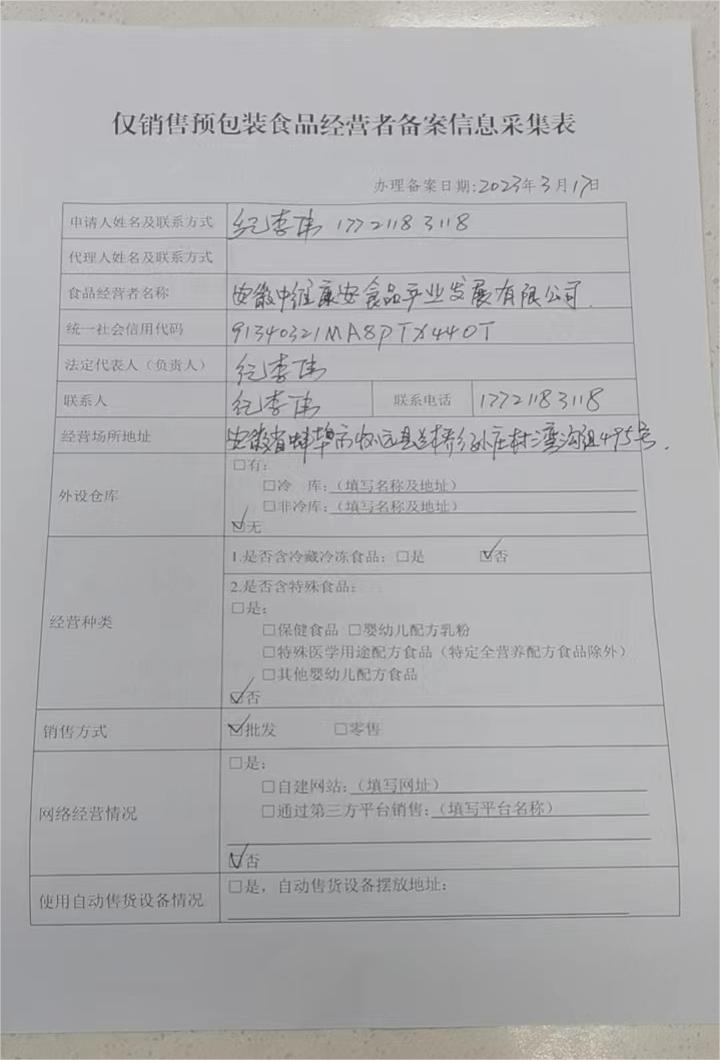 仅销售预包装食品经营者备案信息采集表
办理备案日期:2023年3月17日
申请人姓名及联系方式 纪李伟 17721183118
代理人姓名及联系方式
食品经营者名称 安徽中维康安食品产业发展有限公司.
统一社会信用代码 91340321MA8PTX440T
法定代表人（负责人） 纪李伟
联系人 纪李伟 联系电话 17721183118
经营场所地址 安徽省蚌埠市怀远县 桥乡孙庄村湾沟组495号.
外设仓库 □有:
□冷 库:（填写名称及地址）
□非冷库:（填写名称及地址）
☑无
经营种类 1.是否含冷藏冷冻食品: □是 ☑否
2.是否含特殊食品:
□是:
□保健食品 □婴幼儿配方乳粉
□特殊医学用途配方食品（特定全营养配方食品除外）
□其他婴幼儿配方食品
☑否
销售方式 ☑批发 □零售
网络经营情况 □是:
□自建网站:（填写网址）
□通过第三方平台销售:（填写平台名称）
☑否
使用自动售货设备情况 □是，自动售货设备摆放地址: